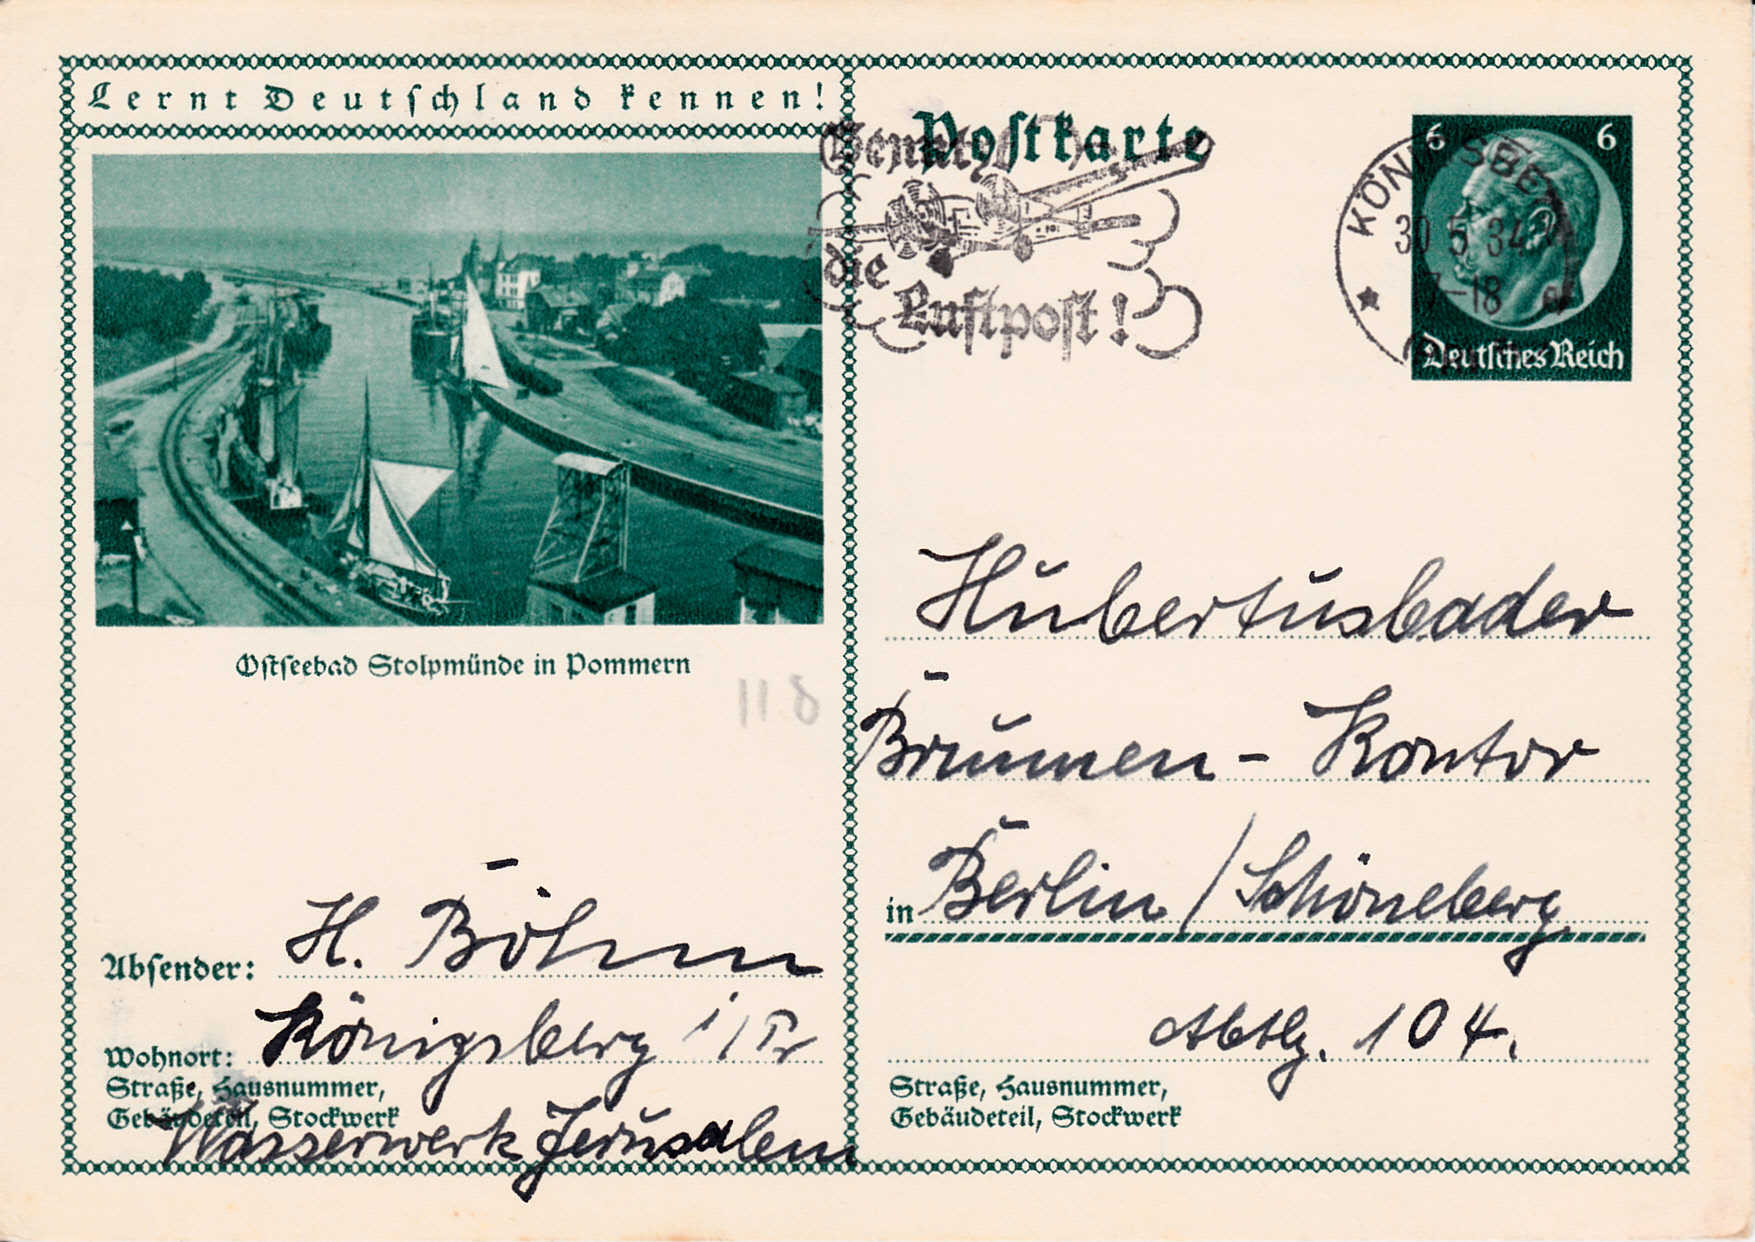 Lernt Deutschland kennen!
Postkarte
Benutzt
die
Luftpost!
KÖNIGSBERG
30.5.34
17-18
6 6
Deutsches Reich
Ostseebad Stolpmünde in Pommern
11.8
Absender: H. Böhm
Wohnort: Königsberg i/Pr
Straße, Hausnummer,
Gebäudeteil, Stockwerk
Wasserwerk Jerusalem
Hubertusbader
Brunnen - Kontor
in Berlin / Schöneberg
Abtlg. 104.
Straße, Hausnummer,
Gebäudeteil, Stockwerk